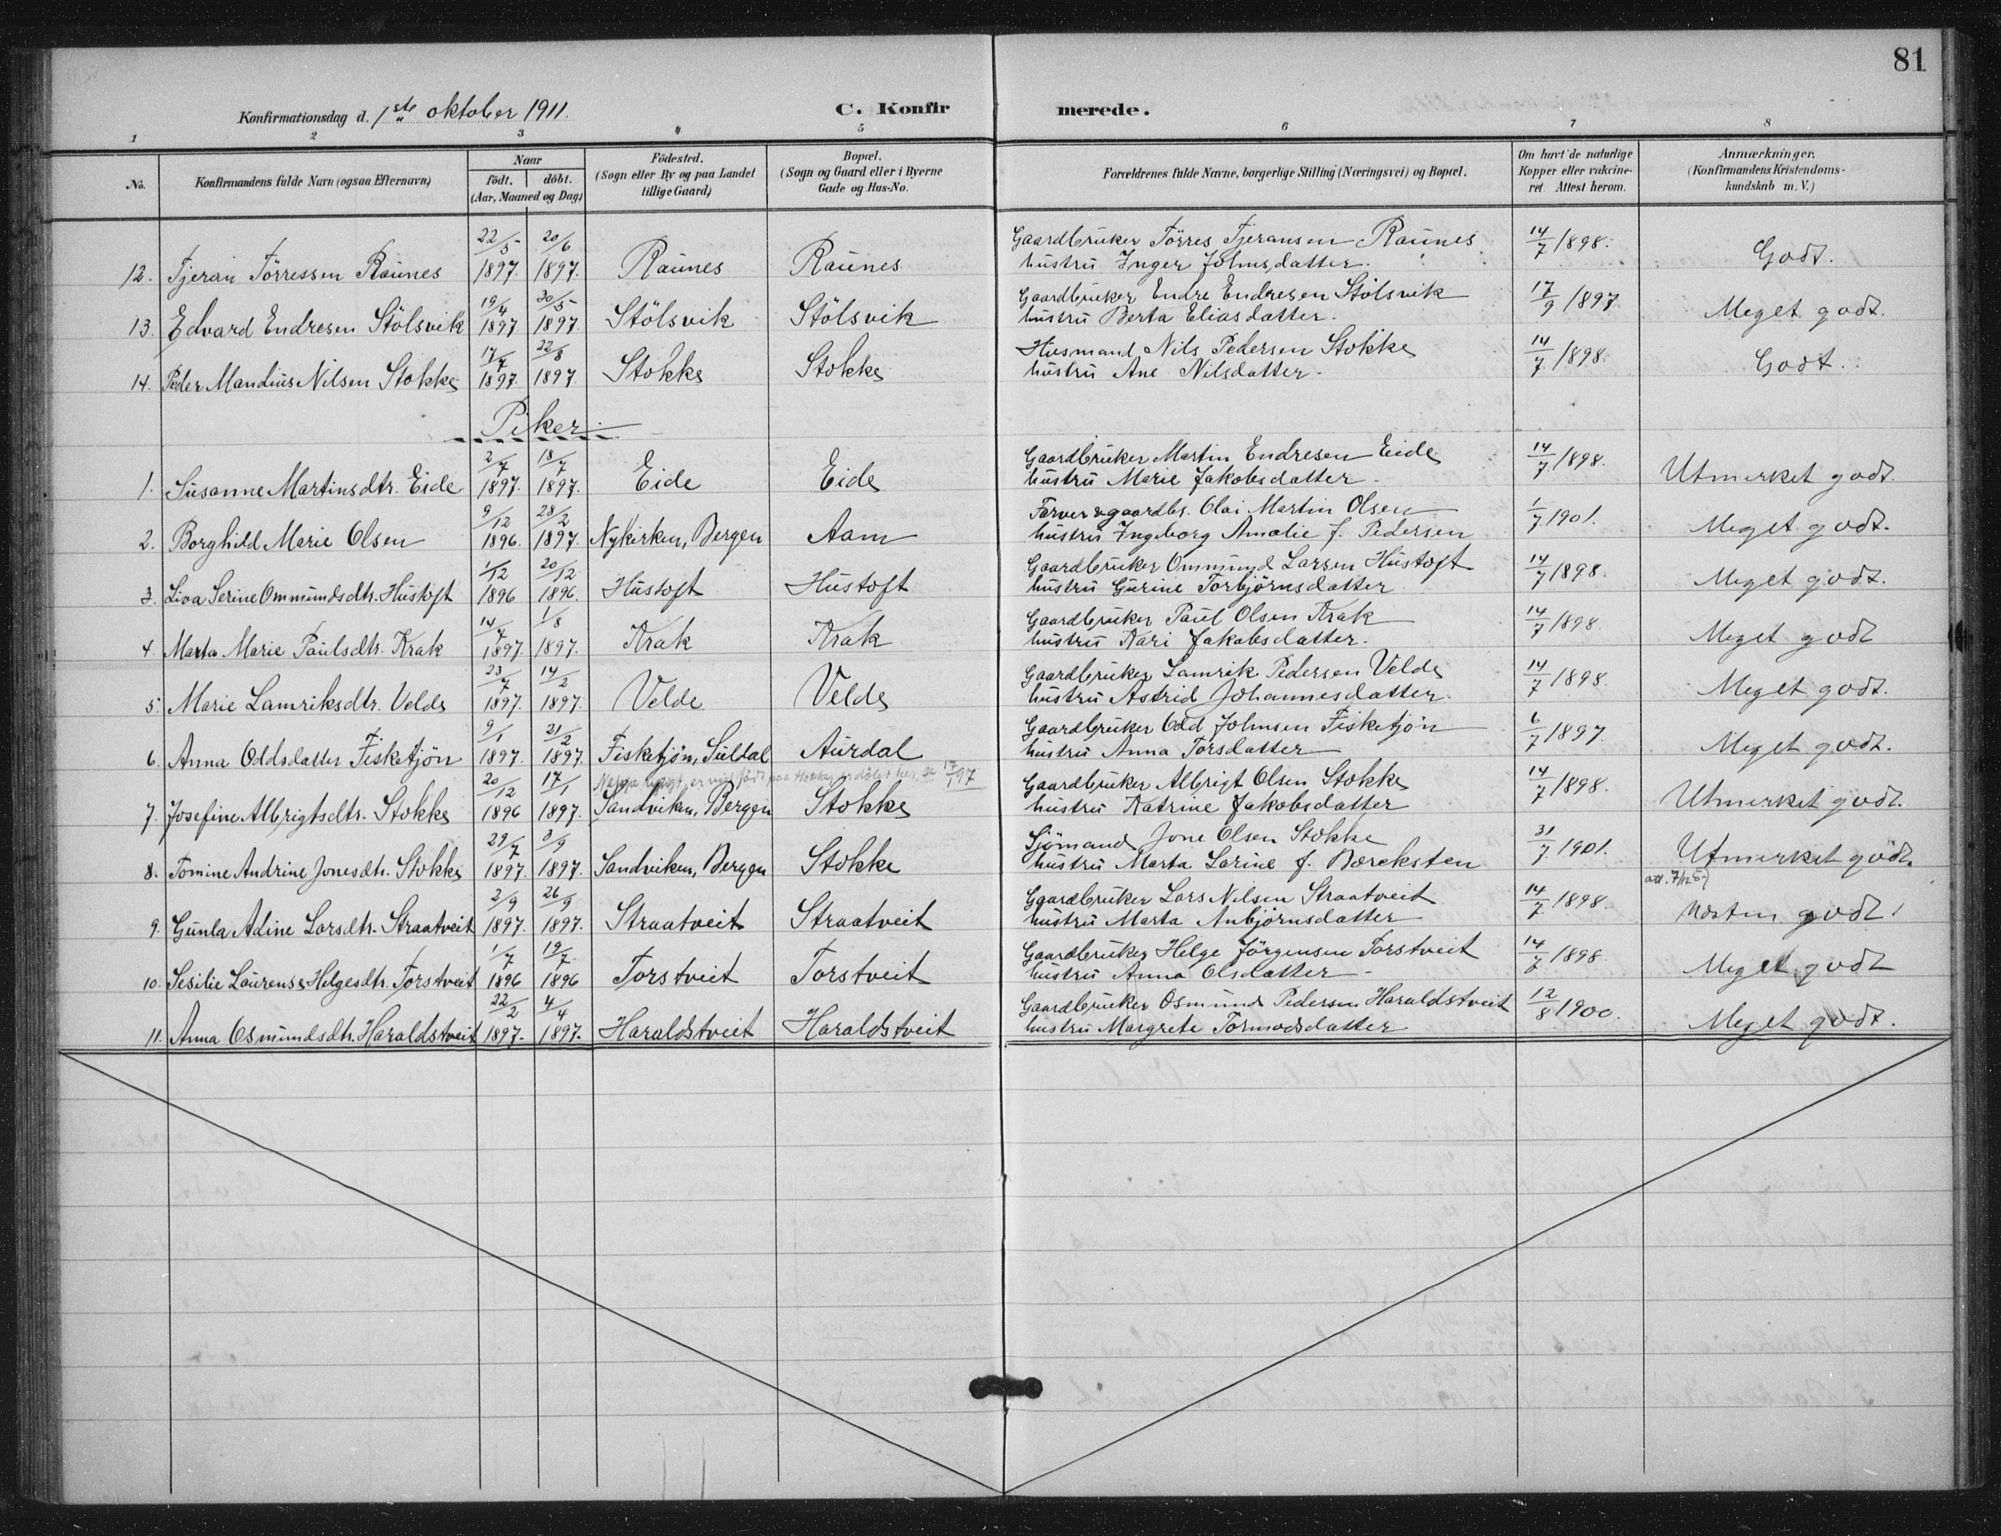 81
Konfirmationsdag d. 1ste oktober 1911. C. Konfirmerede.
1 2 3 4 5 6 7 8
No. Konfirmandens fulde Navn (ogsaa Efternavn) Naar födt. döbt. (Aar, Maaned og Dag) Födested. (Sogn eller By og paa Landet tillige Gaard) Bopæl. (Sogn og Gaard eller i Byerne Gade og Hus-No. Forældrenes fulde Navne, borgerlige Stilling (Næringsvei) og Bopæl. Om havt de naturlige Kopper eller vakcineret. Attest herom. Anmærkninger. (Konfirmandens Kristendomskundskab m. V.)
12. Tjeran Törressen Raunes 22/5 1897. 20/6 1897. Raunes Raunes Gaardbruker Törres Tjeransen Raunes 14/7 1898. Godt.
hustru Inger Johnsdatter.
13. Edvard Endresen Stölsvik 19/4 1897. 20/5 1897. Stölsvik Stölsvik Gaardbruker Endre Endresen Stölsvik 17/9 1897. Meget godt.
hustru Berta Eliasdatter.
14. Peder Mandius Nilsen Stokke 17/7 1897. 22/8 1897. Stokke Stokke Husmand Nils Pedersen Stokke 14/7 1898. Godt.
hustru Ane Nilsdatter.
Piker.
1. Susanne Martinsdtr. Eide 2/7 1897. 18/7 1897. Eide Eide Gaardbruker Martin Endresen Eide 14/7 1898. Utmerket godt.
hustru Marie Jakobsdatter.
2. Borghild Marie Olsen 9/12 1896. 28/2 1897. Nykirken, Bergen Aam Farver & gaardbr. Olai Martin Olsen 1/7 1901. Meget godt.
hustru Ingeborg Amalie f. Pedersen
3. Liva Serine Ommundsdtr. Hustoft 1/12 1896 20/12 1896. Hustoft Hustoft Gaardbruker Ommund Larsen Hustoft 14/7 1898. Meget godt.
hustru Gurine Torbjörnsdatter
4. Marta Marie Paulsdtr. Krak 14/7 1897. 1/8 1897. Krak Krak Gaardbruker Paul Olsen Krak 14/7 1898. Meget godt
hustru Kari Jakobsdatter.
5. Marie Lamriksdtr. Velde 23/7 1897. 14/2 1897. Velde Velde Gaardbruker Lamrik Pedersen Velde 14/7 1898. Meget godt.
hustru Astrid Johannesdatter.
6. Anna Oddsdatter Fisketjön 9/1 1897. 21/2 1897. Fisketjön, Suldal Aurdal Gaardbruker Odd Johnsen Fisketjön 6/7 1897. Meget godt.
hustru Anna Torsdatter
er født paa Stokke, døbt her, se 17/1 97
7. Josefine Albrigtsdtr. Stokke 20/12 1896 17/1 1897. Sandviken, Bergen Stokke Gaardbruker Albrigt Olsen Stokke 14/7 1898. Utmerket godt.
hustru Katrine Jakobsdatter
8. Tomine Andrine Jonesdtr. Stokke 29/7 1897. 3/9 1897. Sandviken, Bergen Stokke Sjömand Jone Olsen Stokke 31/7 1901. Utmerket godt.
hustru Marta Larine f. Bæreksten
att. 7/12 57
9. Gunla Adine Larsdtr. Straatveit 2/9 1897. 26/9 1897. Straatveit Straatveit Gaardbruker Lars Nilsen Straatveit 14/7 1898. Næsten godt.
hustru Marta Anbjörnsdatter
10. Sesilie Laurense Helgesdtr. Torstveit 1/7 1896 19/7 1896 Torstveit Torstveit Gaardbruker Helge Jörgensen Torstveit 14/7 1898. Meget godt
hustru Anna Olsdatter
11. Anna Osmundsdtr. Haraldstveit 22/2 1897. 4/4 1897. Haraldstveit Haraldstveit Gaardbruker Osmund Pedersen Haraldstveit 12/8 1900. Meget godt.
hustru Margrete Tormodsdatter